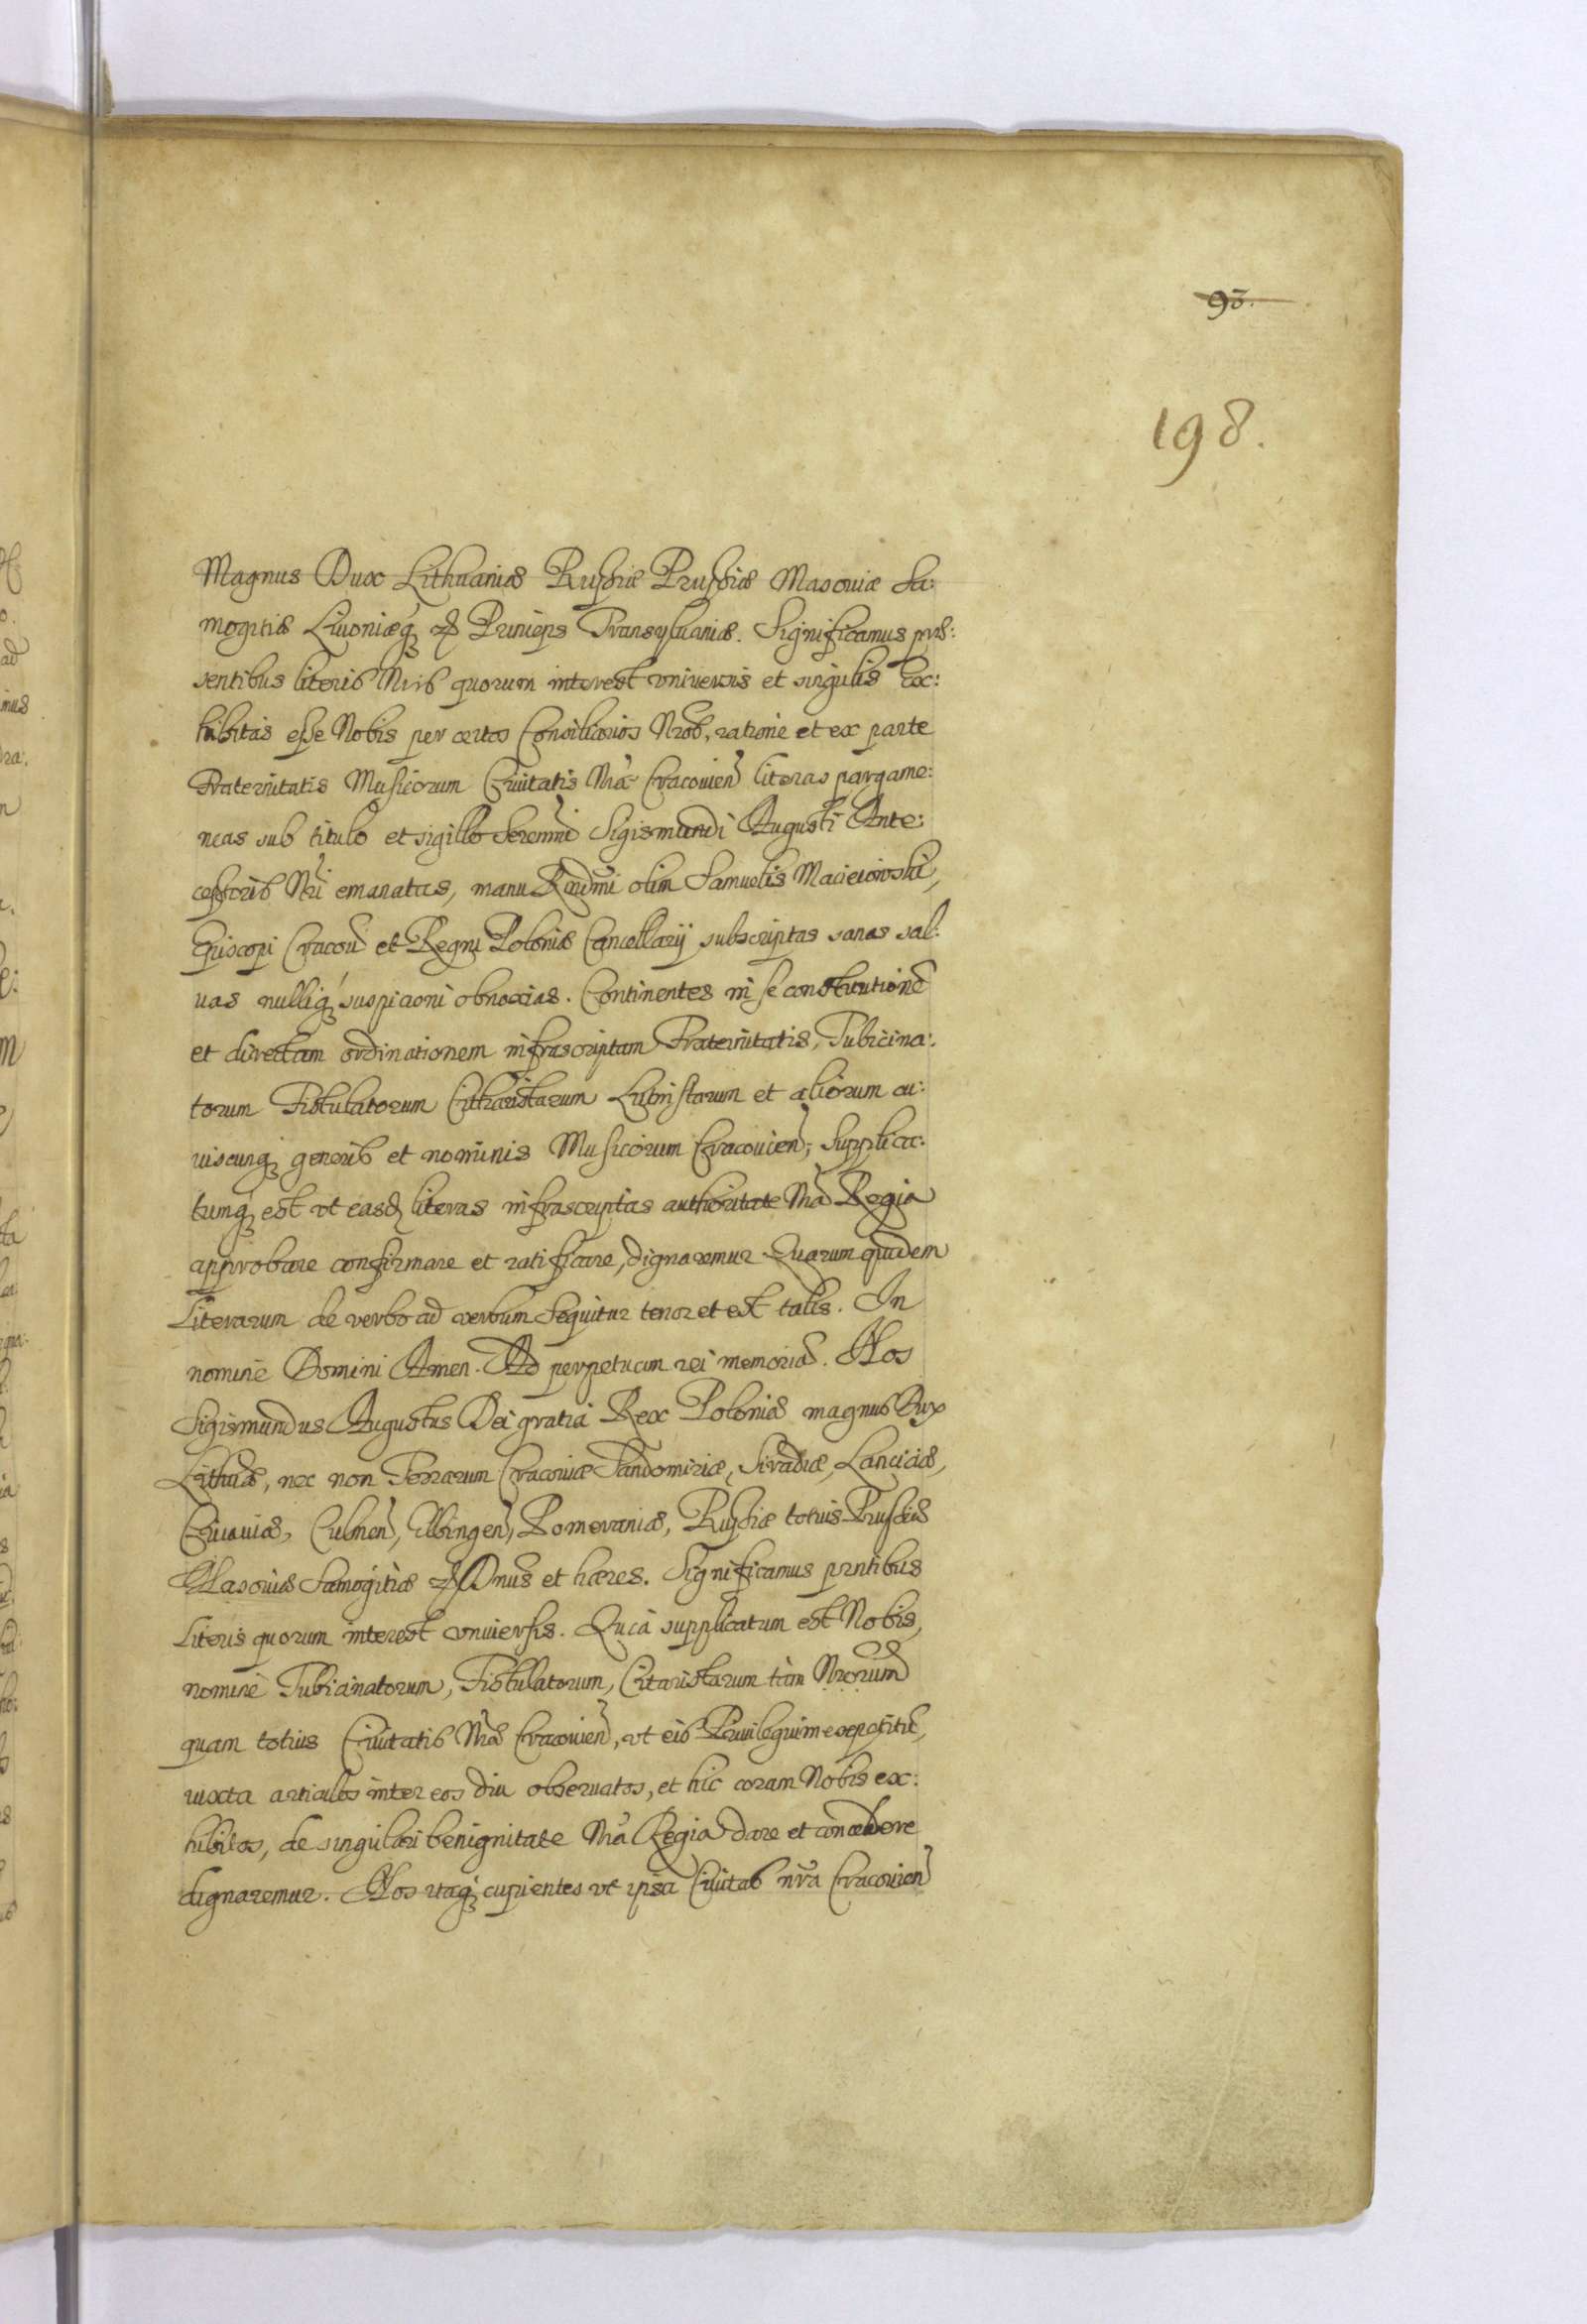 93.
198.
Magnus Dux Lithuaniæ Russiæ Prussiæ Masoviæ Sa:
mogitiæ Livoniæq₃ & Princeps Transyluaniæ. Significamus præ:
sentibus literis Nris quorum interest vniversis et singulis Ex:
hibitas esse Nobis per certos Consiliarios Nros, ratione et ex parte
Fraternitatis Musicorum Ciuitatis Nræ Cracouien literas pargame:
neas sub titulo et sigillo Serenmi Sigismundi Augusti Ante:
cessoris Nri emanatas, manu Rndmi olim Samuelis Macieiowski,
Episcopi Cracou et Regni Poloniæ Cancellarij subscriptas sanas sal:
uas nulliq₃ suspicioni obnoxias. Continentes in se constitutione
et directam ordinationem infrascriptam Fraternitatis, Tubicina:
torum Fistulatorum Cithaistarum Lutnistarum et aliorum cu:
uiscunq₃ generis et nominis Musicorum Cracouien, Supplica:
tumq₃ est vt easd literas infrascriptas authoritate Nra Regia
approbare confirmare et ratificare, dignaremur. Quarum quidem
Literarum de verbo ad verbum sequitur tenor et est talis. In
nomine Domini Amen. Ad perpetuam rei memoria. Nos
Sigismundus Augustus Dei gratia Rex Poloniæ magnus Dux
Lithuæ, nec non Terrarum Cracouiæ Sandomiriæ, Siradiæ, Lanciciæ,
Cuiauiæ, Culmen, Elbingen, Pomeraniæ, Russiæ totius Prussiæ
Masoviæ Samogitiæ & Dnus et hæres. Significamus prntibus
Literis quorum interest vniuersis. Quia supplicatum est Nobis,
nomine Tubicinatorum, Fistullatorum, Citaristarum tàm Nrorum
quam totius Ciuitatis Nræ Cracouien, vt eis Priuilegium
iuxta articulos inter eos diu obseruatos, et hic coram Nobis ex:
hibitos, de singulari benignitate Nra Regia dare et concedere
dignaremur. Nos itaq₃ cupientes vt ipsa Ciuitas nra Cracouien